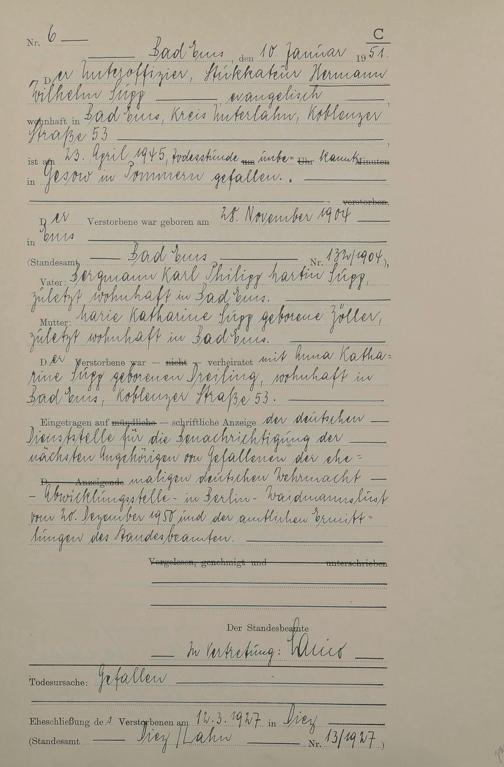 C
Nr. 6
Bad Ems, den 10. Januar 1951.
Der Unteroffizier, Stukkateur Hermann
Wilhelm Supp evangelisch,
wohnhaft in Bad Ems, Kreis Unterlahn, Koblenzer
Straße 53,
ist am 23. April 1945, Todesstunde um unbe- Uhr kannt Minuten
in Gesow in Pommern gefallen.
verstorben.
Der Verstorbene war geboren am 28. November 1904
in Ems
(Standesamt Bad Ems Nr. 132/1904),
Vater: Bergmann Karl Philipp Martin Supp,
zuletzt wohnhaft in Bad Ems.
Mutter: Marie Katharine Supp geborene Zöller,
zuletzt wohnhaft in Bad Ems.
Der Verstorbene war – nicht – verheiratet mit Anna Katha=
rine Supp geborenen Dreiling, wohnhaft in
Bad Ems, Koblenzer Straße 53.
Eingetragen auf mündliche – schriftliche Anzeige der deutschen
Dienststelle für die Benachrichtigung der
nächsten Angehörigen von Gefallenen der ehe=
D. Anzeigende maligen deutschen Wehrmacht
- Abwicklungsstelle - in Berlin-Waidmannslust
vom 20. Dezember 1950 und der amtlichen Ermitt=
lungen des Standesbeamten.
Vorgelesen, genehmigt und unterschrieben
Der Standesbeamte
In Vertretung:
Todesursache: Gefallen
Eheschließung des Verstorbenen am 12.3.1927 in Diez
(Standesamt Diez/Lahn Nr. 13/1927)